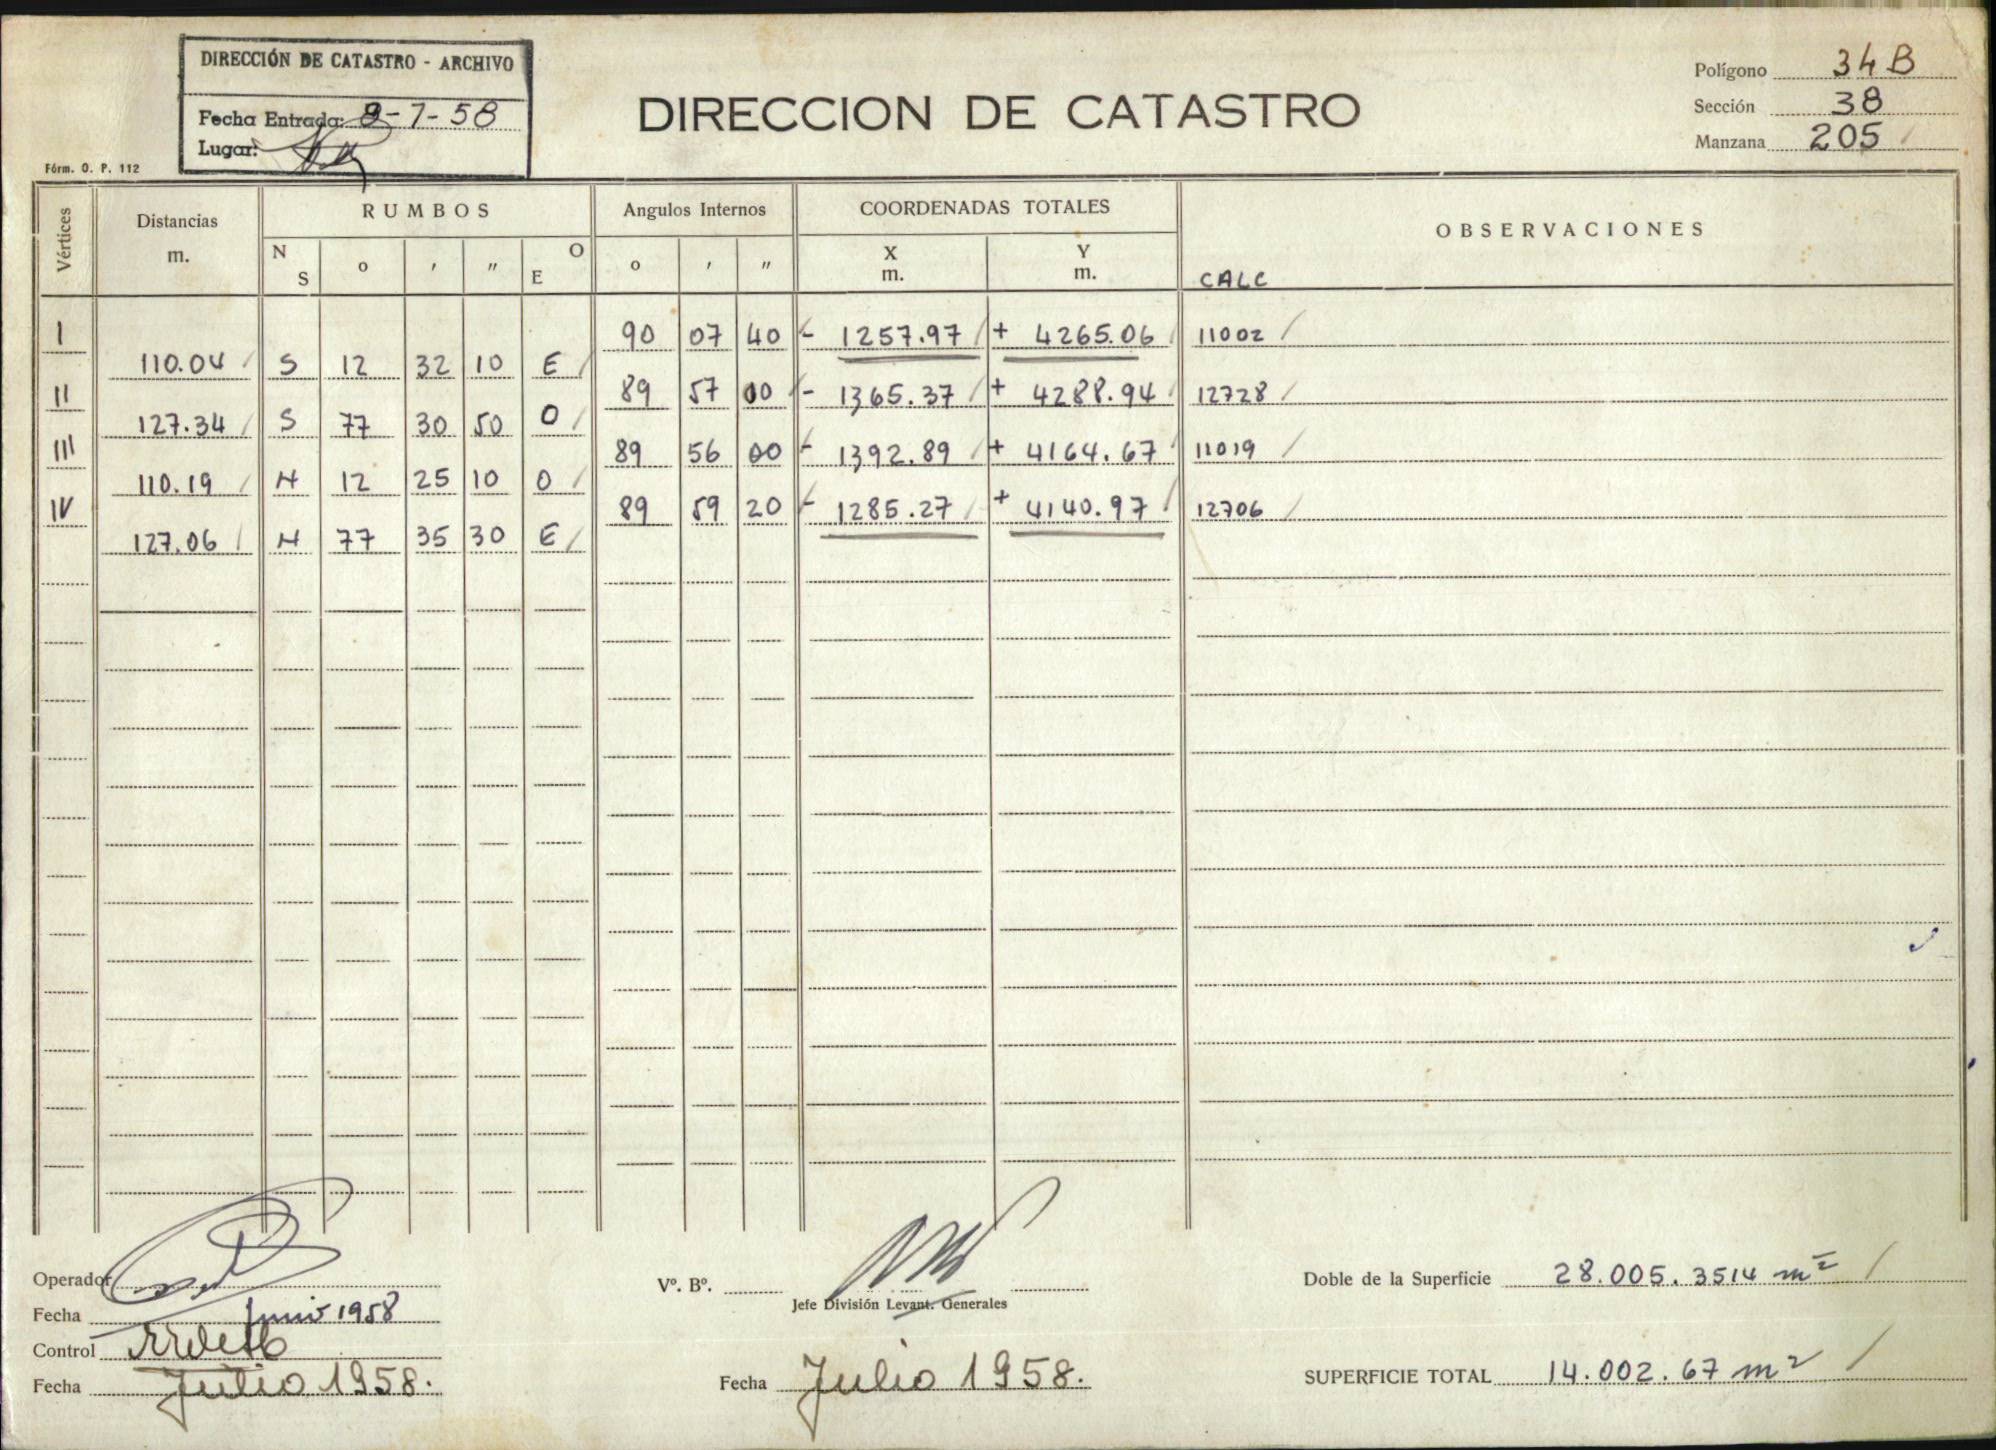 DIRECCIÓN DE CATASTRO - ARCHIVO
Fecha Entrada: 8-7-58
Lugar:
Fórm. O. P. 112
DIRECCION DE CATASTRO
Polígono 34 B
Sección 38
Manzana 205
Vértices Distancias m. RUMBOS Angulos Internos COORDENADAS TOTALES OBSERVACIONES
N S o ' " O E o ' " X m. Y m. CALC
I 90 07 40 - 1257.97 + 4265.06 11002
110.04 S 12 32 10 E
II 89 57 00 - 1365.37 + 4288.94 12728
127.34 S 77 30 50 O
III 89 56 00 - 1392.89 + 4164.67 11019
110.19 N 12 25 10 O
IV 89 59 20 - 1285.27 + 4140.97 12706
127.06 N 77 35 30 E
Operador
Fecha Junio 1958
Control
Fecha Julio 1958.
Vº. Bº.
Jefe División Levant. Generales
Fecha Julio 1958.
Doble de la Superficie 28.005.3514 m²
SUPERFICIE TOTAL 14.002.67 m²